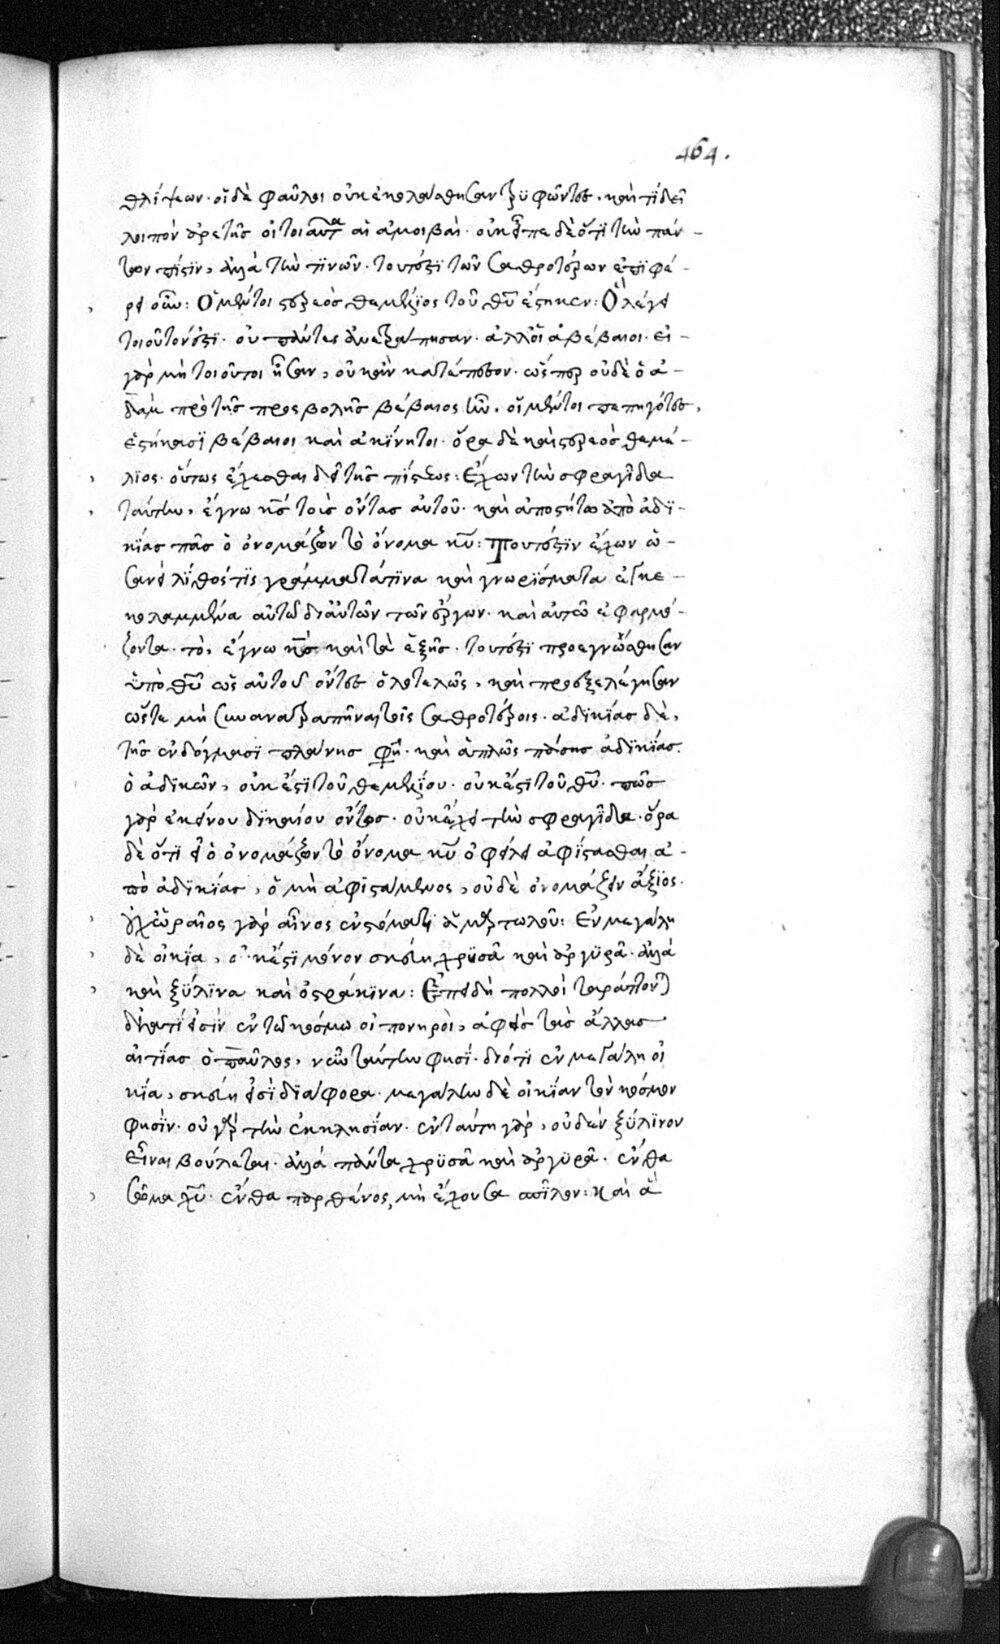 464.
θλίψεων· οἱ δὲ φαῦλοι οὐκ ἐκολούθησαν τρυφῶντες· καὶ τί δεῖ
λοιπὸν ἀρετῆς οἱ τοιαῦτα αἱ ἀμοιβαί· οὐκ εἶπε δὲ ὅτι τὴν πάν-
των πίστιν, ἀλλὰ τὴν τινῶν· τουτέστι τῶν σαθροτέρων ἐπιφέ-
ρει οὖν: Ὁ μέντοι στερεὸς θεμέλιος τοῦ θῦ ἕστηκεν: Ὃ λέγει
τοιοῦτόν ἐστι· οὐ πάντες ἀνετράπησαν· ἀλλ' οἱ ἀβέβαιοι· εἰ
γὰρ μὴ τοιοῦτοι ἦσαν, οὐκ ἂν κατέπεσον· ὥσπερ οὐδὲ ὁ ἀ-
δὰμ πρὸ τῆς προσβολῆς βέβαιος ἦν· οἱ μέντοι πεπηγότες,
ἑστήκασι βέβαιοι καὶ ἀκίνητοι· ὅρα δὲ καὶ στερεὸς θεμέ-
λιος· οὕτως ἔχεσθαι δεῖ τῆς πίστεως: Ἔχων τὴν σφραγῖδα
ταύτην, ἔγνω κς τοὺς ὄντας αὐτοῦ· καὶ ἀποστήτω ἀπὸ ἀδι-
κίας πᾶς ὁ ὀνομάζων τὸ ὄνομα κυ: Τουτέστιν ἔχων ὡ-
σανεὶ λίθός τις γράμματά τινα καὶ γνωρίσματα ἐγκε-
κολαμμένα αὐτῶ δι' αὐτῶν τῶν ἔργων· καὶ αὐτῶ ἐφαρμό-
ζοντα· τὸ, ἔγνω κς καὶ τὰ ἑξῆς· τουτέστι προεγνώσθησαν
ὑπὸ θῦ ὡς αὐτοῦ ὄντες ὁλοτελῶς, καὶ προεξελέγησαν
ὥστε μὴ συνανατραπῆναι τοῖς σαθροτέροις· ἀδικίας δὲ,
τῆς ἐν δόγμασι πλάνης φησί· καὶ ἁπλῶς πάσης ἀδικίας.
ὁ ἀδικῶν, οὐκ ἔστι τοῦ θεμελίου· οὐκ ἔστι τοῦ θῦ· πῶς
γὰρ ἐκείνου δικαίου ὄντος· οὐκ ἔχει τὴν σφραγῖδα· ὅρα
δὲ ὅτι εἰ ὁ ὀνομάζων τὸ ὄνομα κυ ὀφείλει ἀφίστασθαι ἀ-
πὸ ἀδικίας, ὁ μὴ ἀφιστάμενος, οὐδὲ ὀνομάζειν ἄξιος·
οὐχ ὡραῖος γὰρ αἶνος ἐν στόματι ἁμαρτωλοῦ: Ἐν μεγάλη
δὲ οἰκία, οὐκ ἔστι μόνον σκεύη χρυσᾶ καὶ ἀργυρᾶ· ἀλλὰ
καὶ ξύλινα καὶ ὀστράκινα: Ἐπειδὴ πολλοὶ ταράττονται
διατί εἰσὶν ἐν τῶ κόσμω οἱ πονηροί, ἀφεὶς τὰς ἄλλας
αἰτίας ὁ παῦλος, νῦν ταύτην φησί· διότι ἐν μεγάλη οἰ
κία, σκεύη εἰσὶ διάφορα· μεγάλην δὲ οἰκίαν τὸν κόσμον
φησίν· οὐ γὰρ τὴν ἐκκλησίαν· ἐν ταύτη γὰρ, οὐδὲν ξύλινον
εἶναι βούλεται· ἀλλὰ πάντα χρυσᾶ καὶ ἀργυρᾶ· ἔνθα
σῶμα χῦ· ἔνθα παρθένος, μὴ ἔχουσα σπῖλον: Καὶ ἃ